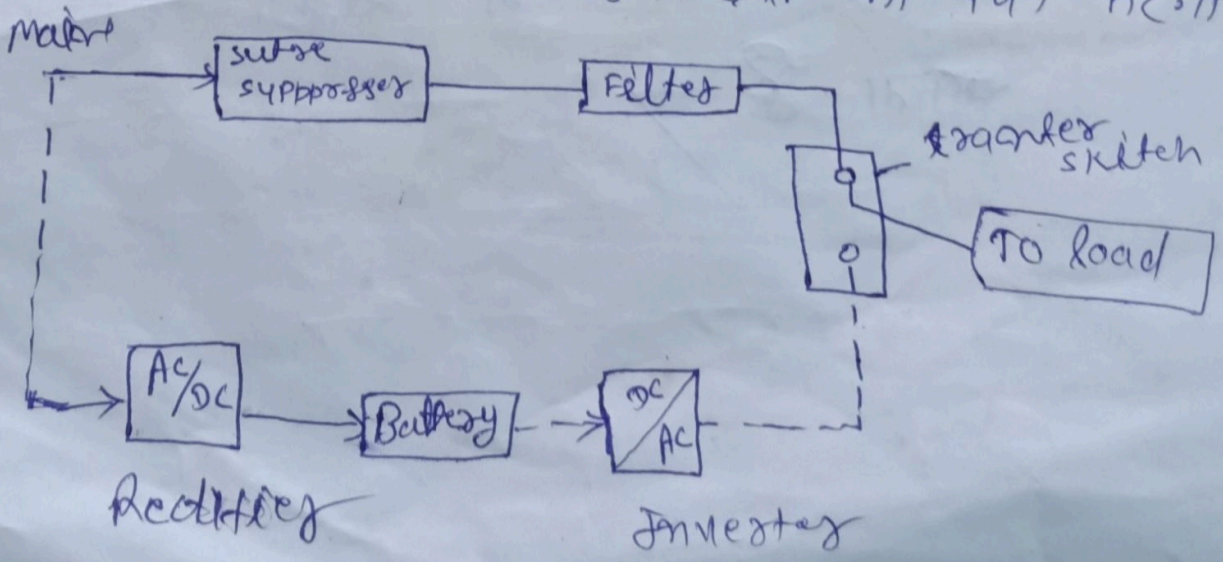 surge
suppresser
Filter
tranfer
skitch
To load
AC/DC
Battery
DC/AC
Rectifier
Inverter